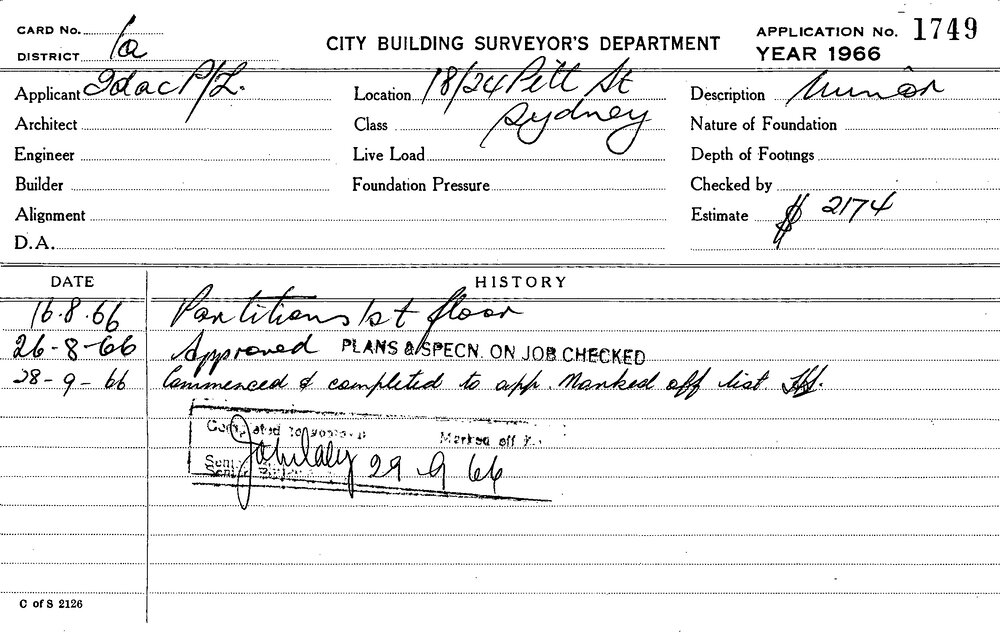 CARD No.
DISTRICT 1a
CITY BUILDING SURVEYOR'S DEPARTMENT
APPLICATION No. 1749
YEAR 1966
Applicant Idac P/L.
Location 18/24 Pitt St
Sydney
Description Minor
Architect
Class
Nature of Foundation
Engineer
Live Load
Depth of Footings
Builder
Foundation Pressure
Checked by
Alignment
Estimate $ 2174
D.A.
DATE HISTORY
16.8.66 Partitions 1st floor
26-8-66 Approved PLANS & SPECN. ON JOB CHECKED
28-9-66 Commenced & completed to app. Marked off list
Marked off
29 9 66
C of S 2126